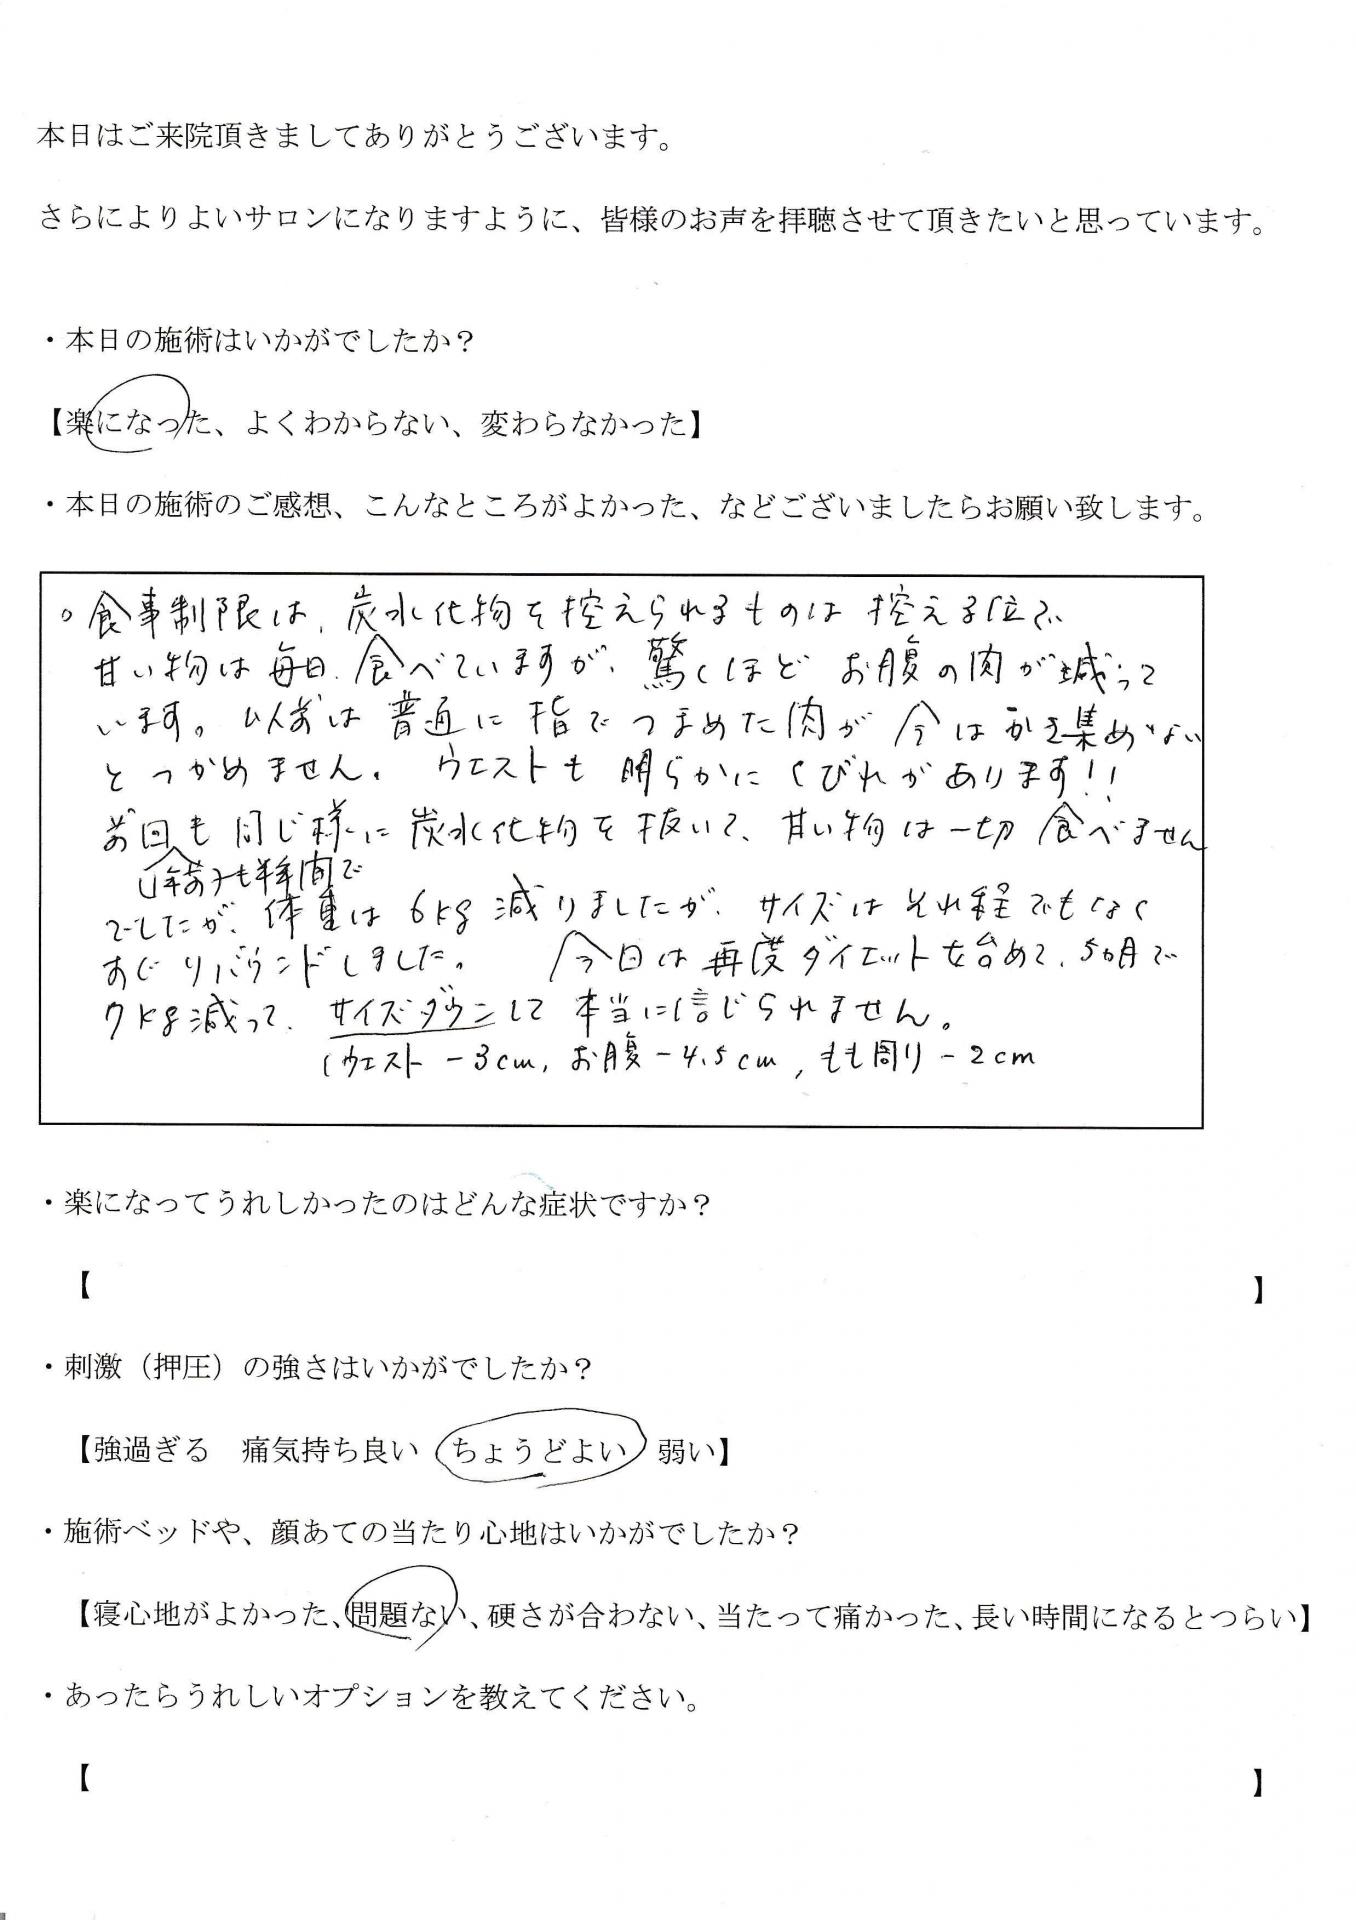 本日はご来院頂きましてありがとうございます。
さらによりよいサロンになりますように、皆様のお声を拝聴させて頂きたいと思っています。
・本日の施術はいかがでしたか？
【楽になった、よくわからない、変わらなかった】
・本日の施術のご感想、こんなところがよかった、などございましたらお願い致します。
○食事制限は、炭水化物を控えられるものは控える位で、
甘い物は毎日、食べていますが、驚くほどお腹の肉が減って
います。以前は普通に指でつまめた肉が今はかき集めない
とつかめません。ウエストも明らかにくびれがあります!!
前回も同じ様に炭水化物を抜いて、甘い物は一切食べません
（1年前）も半年間で
でしたが、体重は6kg減りましたが、サイズはそれ程でもなく
すぐリバウンドしました。 今回は再度ダイエットを始めて、5ヵ月で
7kg減って、サイズダウンして本当に信じられません。
（ウエスト -3cm, お腹 -4.5cm, もも周り -2cm
・楽になってうれしかったのはどんな症状ですか？
【 】
・刺激（押圧）の強さはいかがでしたか？
【強過ぎる 痛気持ち良い ちょうどよい 弱い】
・施術ベッドや、顔あての当たり心地はいかがでしたか？
【寝心地がよかった、問題ない、硬さが合わない、当たって痛かった、長い時間になるとつらい】
・あったらうれしいオプションを教えてください。
【 】